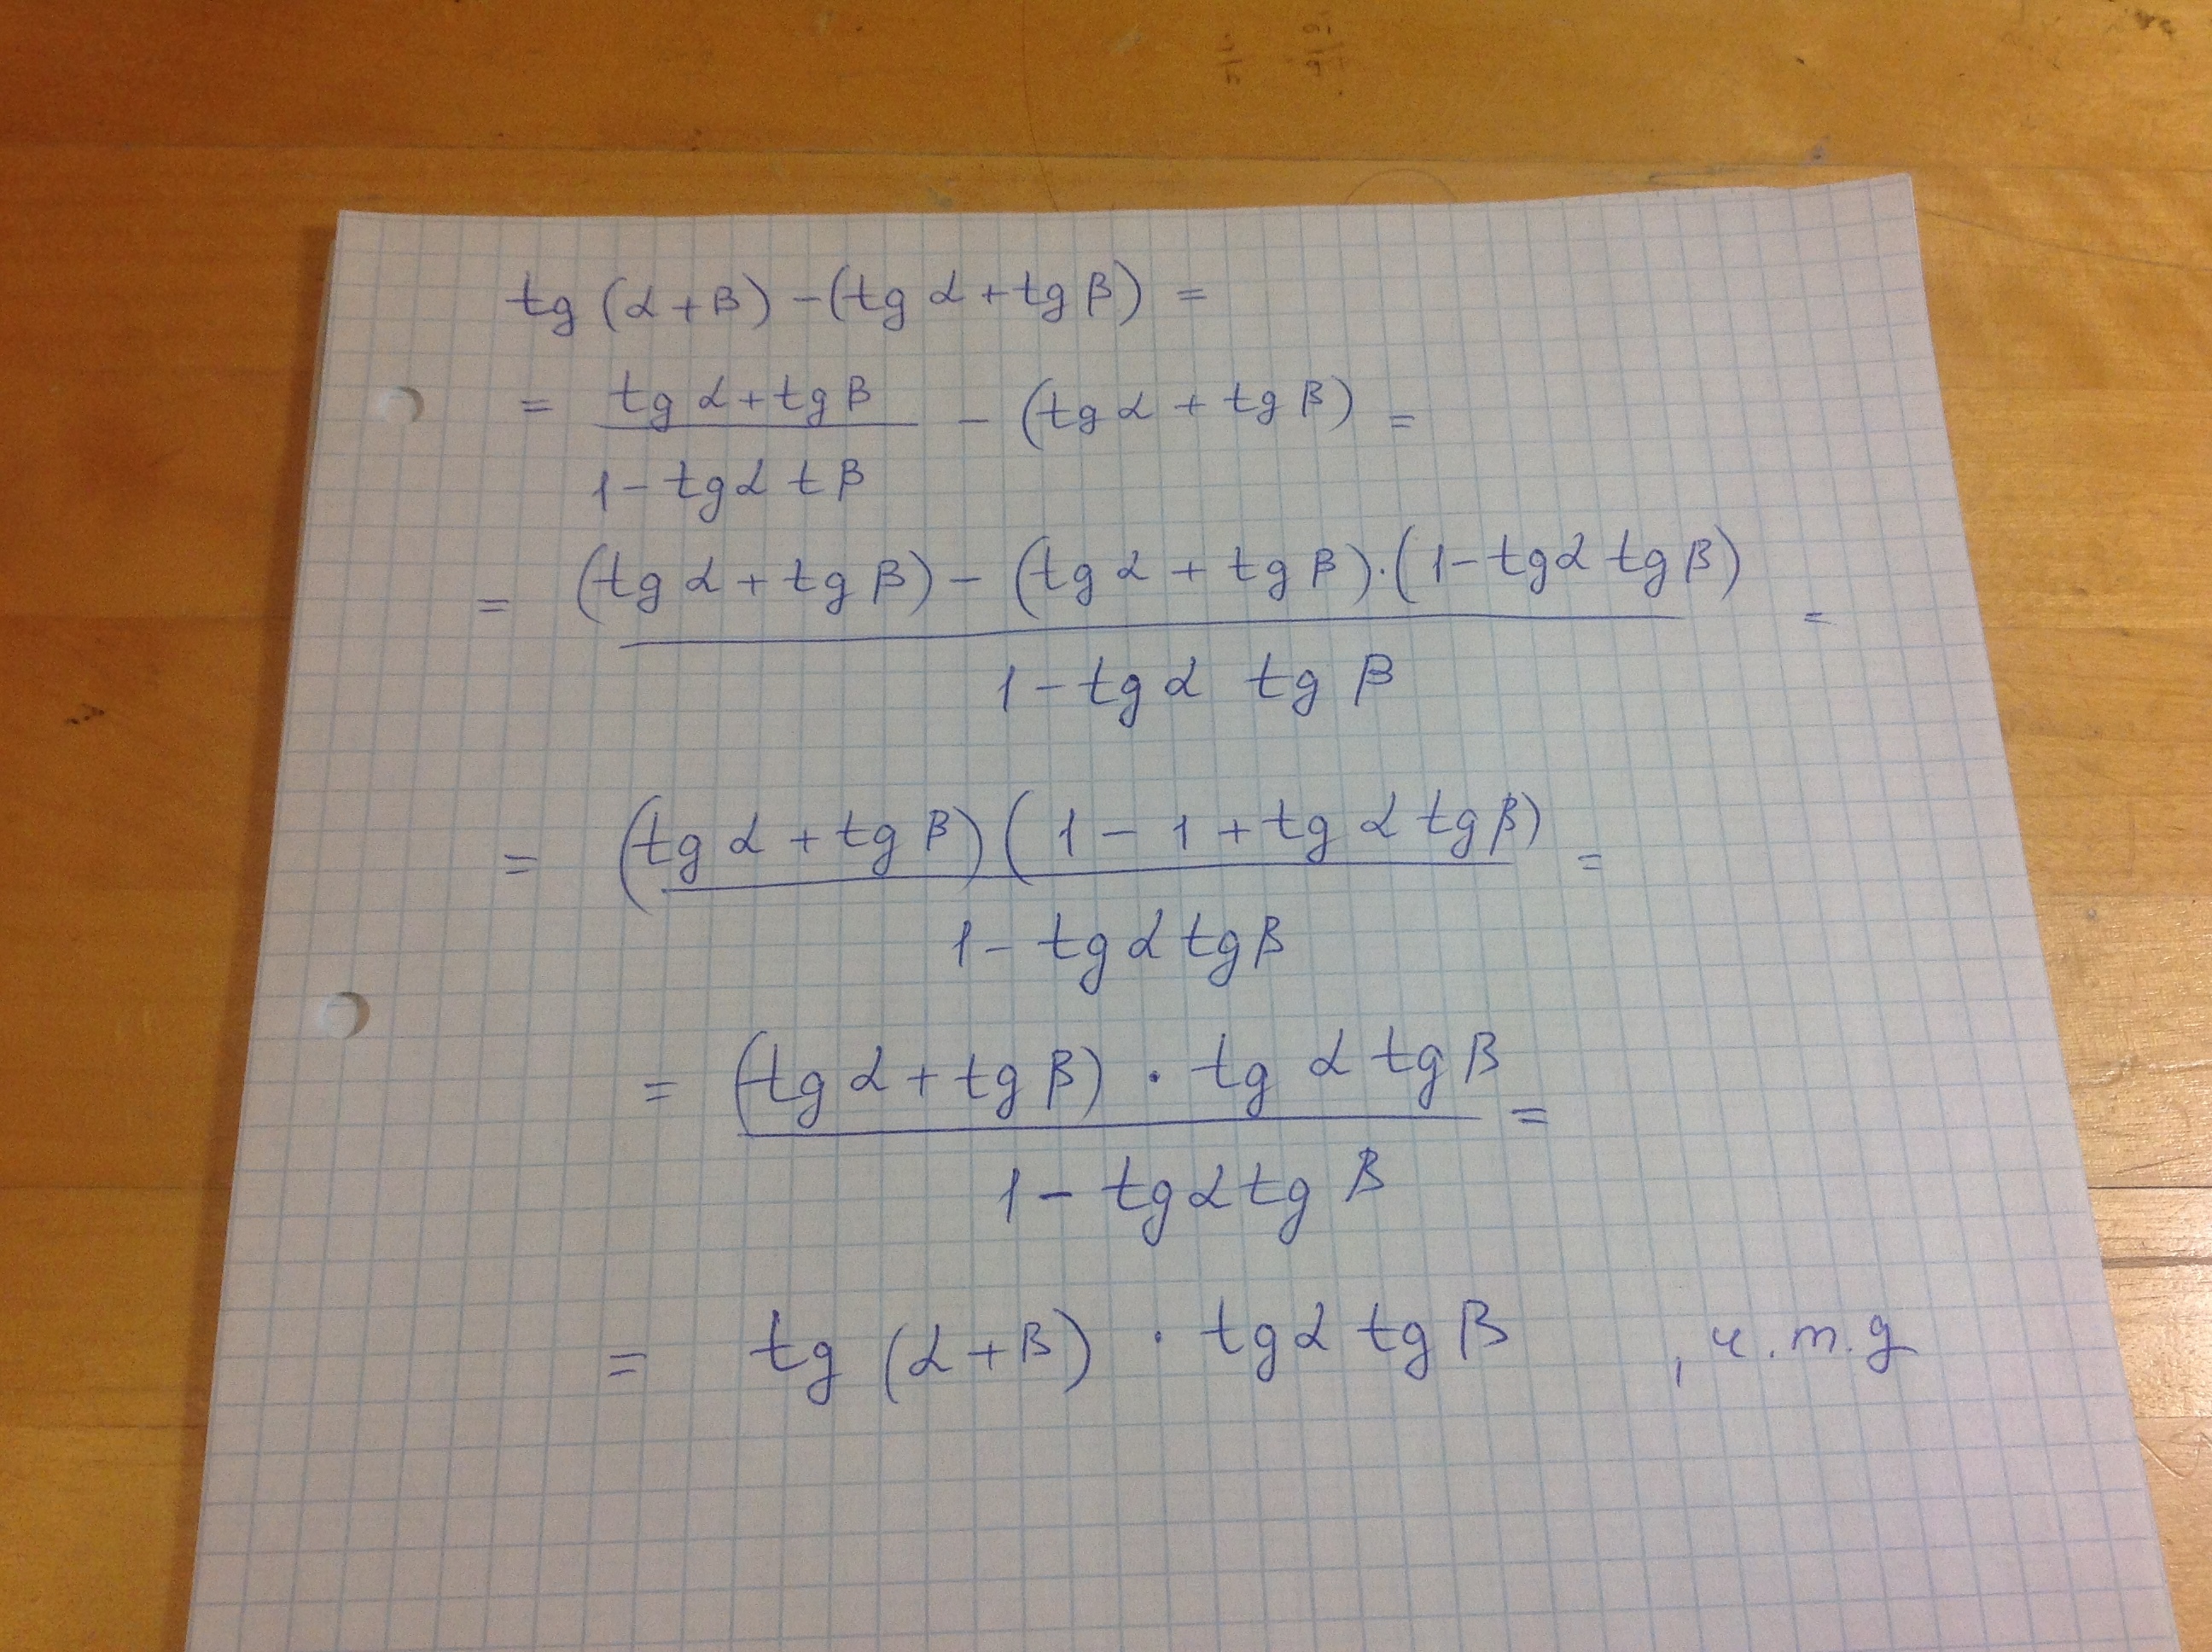 tg (α+β) - (tg α + tg β) =
= (tg α + tg β) / (1 - tg α t β) - (tg α + tg β) =
= ((tg α + tg β) - (tg α + tg β)·(1 - tg α tg β)) / (1 - tg α tg β) =
= (tg α + tg β)(1 - 1 + tg α tg β) / (1 - tg α tg β) =
= (tg α + tg β) · tg α tg β / (1 - tg α tg β) =
= tg (α+β) · tg α tg β , ч.т.д